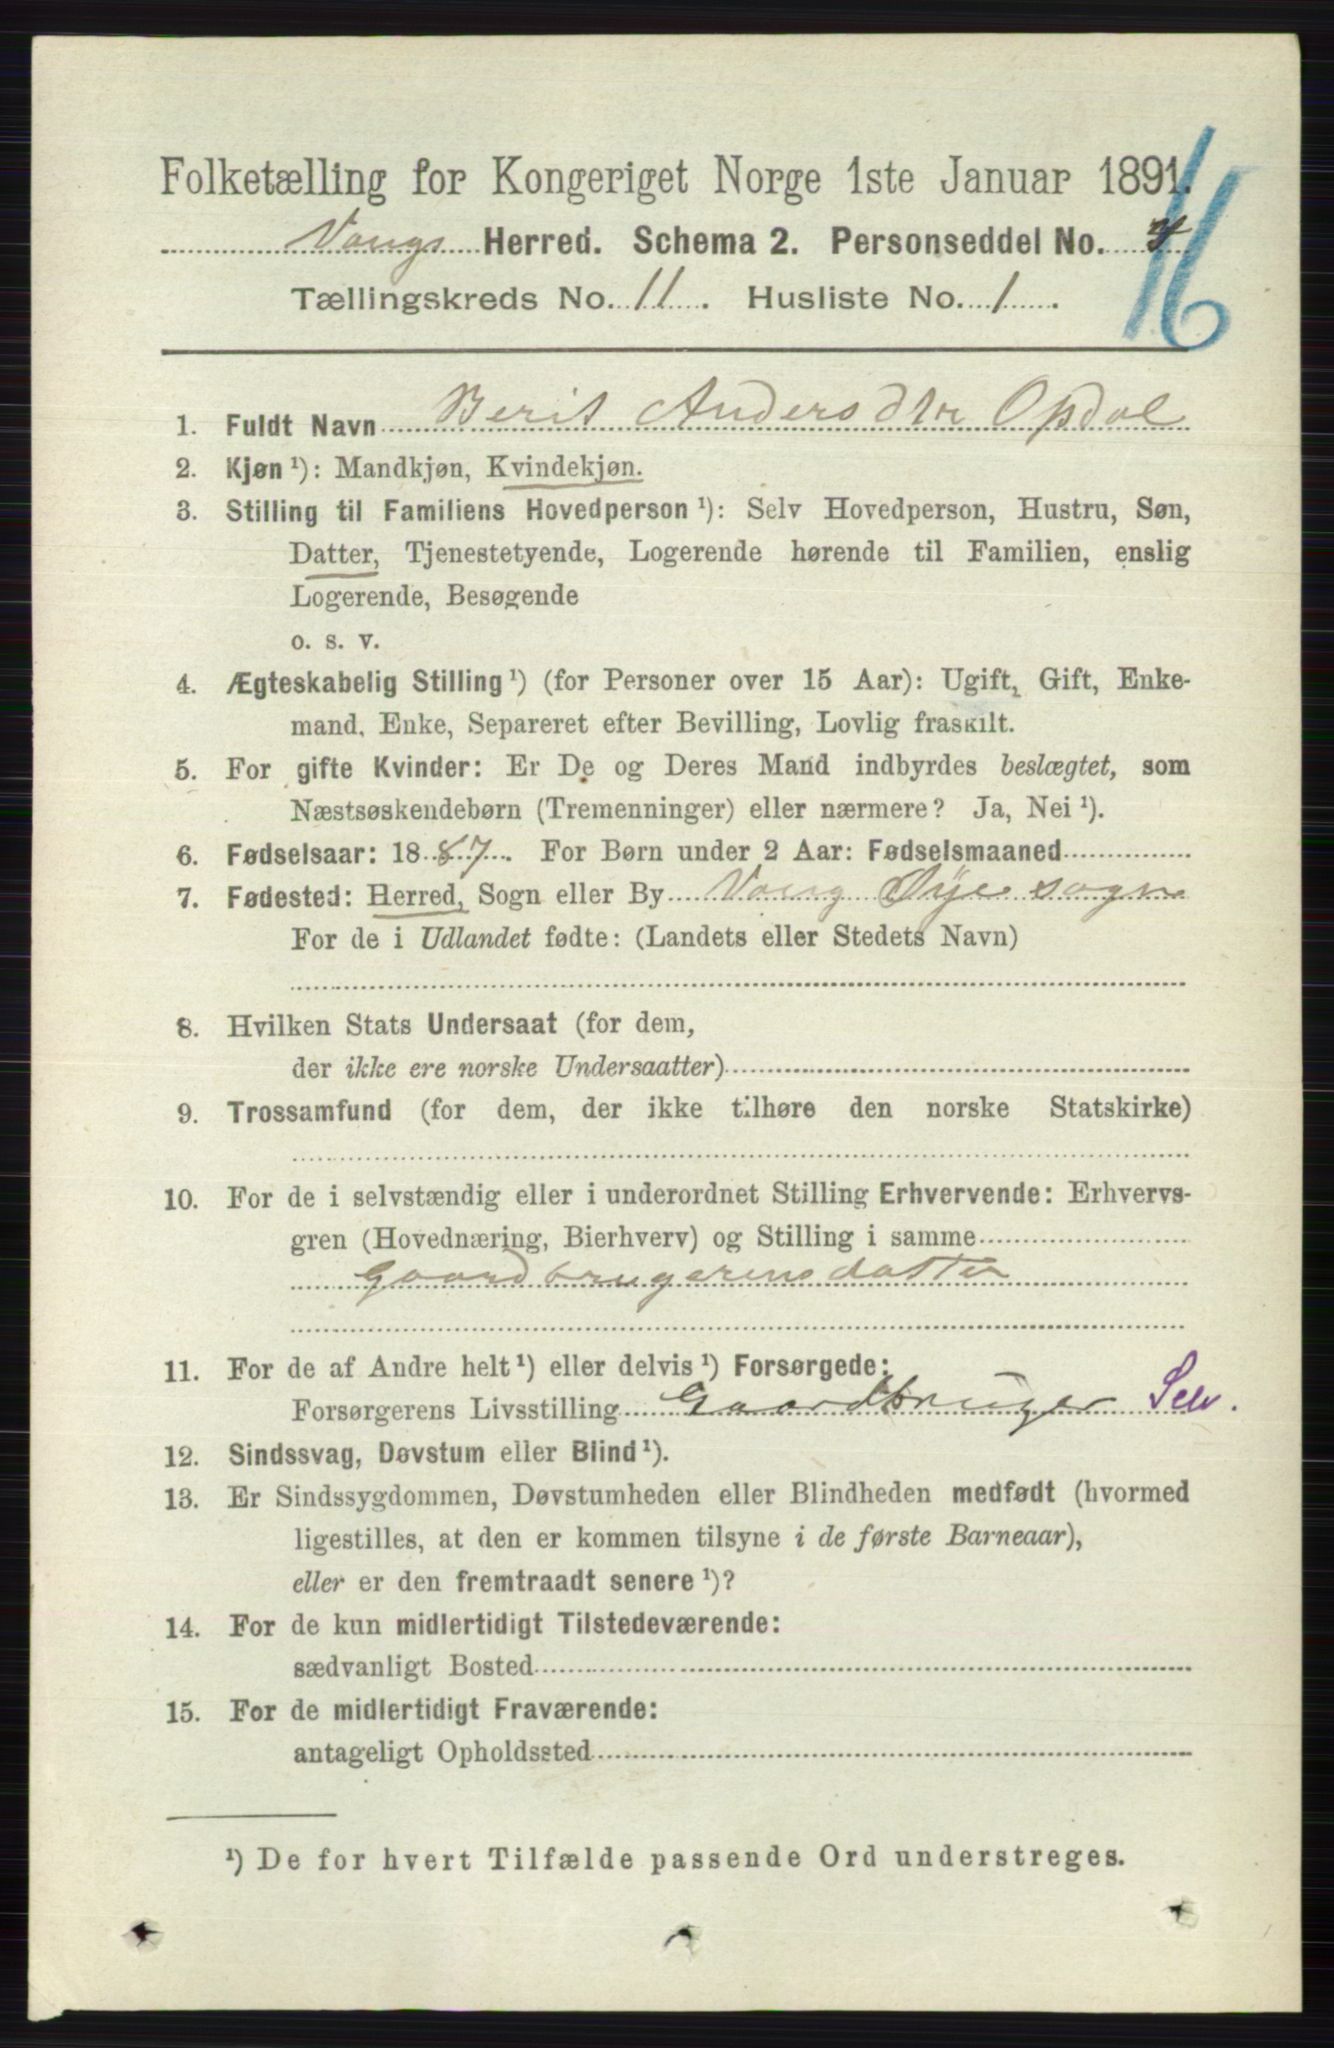 Folketælling for Kongeriget Norge 1ste Januar 1891.
Vangs Herred. Schema 2. Personseddel No. 4
16
Tællingskreds No. 11. Husliste No. 1.
1. Fuldt Navn Berit Andersdtr Opdal
2. Kjøn ¹): Mandkjøn, Kvindekjøn.
3. Stilling til Familiens Hovedperson ¹): Selv Hovedperson, Hustru, Søn,
Datter, Tjenestetyende, Logerende hørende til Familien, enslig
Logerende, Besøgende
o. s. v.
4. Ægteskabelig Stilling ¹) (for Personer over 15 Aar): Ugift, Gift, Enke-
mand, Enke, Separeret efter Bevilling, Lovlig fraskilt.
5. For gifte Kvinder: Er De og Deres Mand indbyrdes beslægtet, som
Næstsøskendebørn (Tremenninger) eller nærmere? Ja, Nei ¹).
6. Fødselsaar: 1887. For Børn under 2 Aar: Fødselsmaaned
7. Fødested: Herred, Sogn eller By Vang Øye sogn
For de i Udlandet fødte: (Landets eller Stedets Navn)
8. Hvilken Stats Undersaat (for dem,
der ikke ere norske Undersaatter)
9. Trossamfund (for dem, der ikke tilhøre den norske Statskirke)
10. For de i selvstændig eller i underordnet Stilling Erhvervende: Erhvervs-
gren (Hovednæring, Bierhverv) og Stilling i samme
Gaardbrugerens datter
11. For de af Andre helt ¹) eller delvis ¹) Forsørgede:
Forsørgerens Livsstilling Gaardbruger Selv.
12. Sindssvag, Døvstum eller Blind ¹).
13. Er Sindssygdommen, Døvstumheden eller Blindheden medfødt (hvormed
ligestilles, at den er kommen tilsyne i de første Barneaar),
eller er den fremtraadt senere ¹)?
14. For de kun midlertidigt Tilstedeværende:
sædvanligt Bosted
15. For de midlertidigt Fraværende:
antageligt Opholdssted
¹) De for hvert Tilfælde passende Ord understreges.